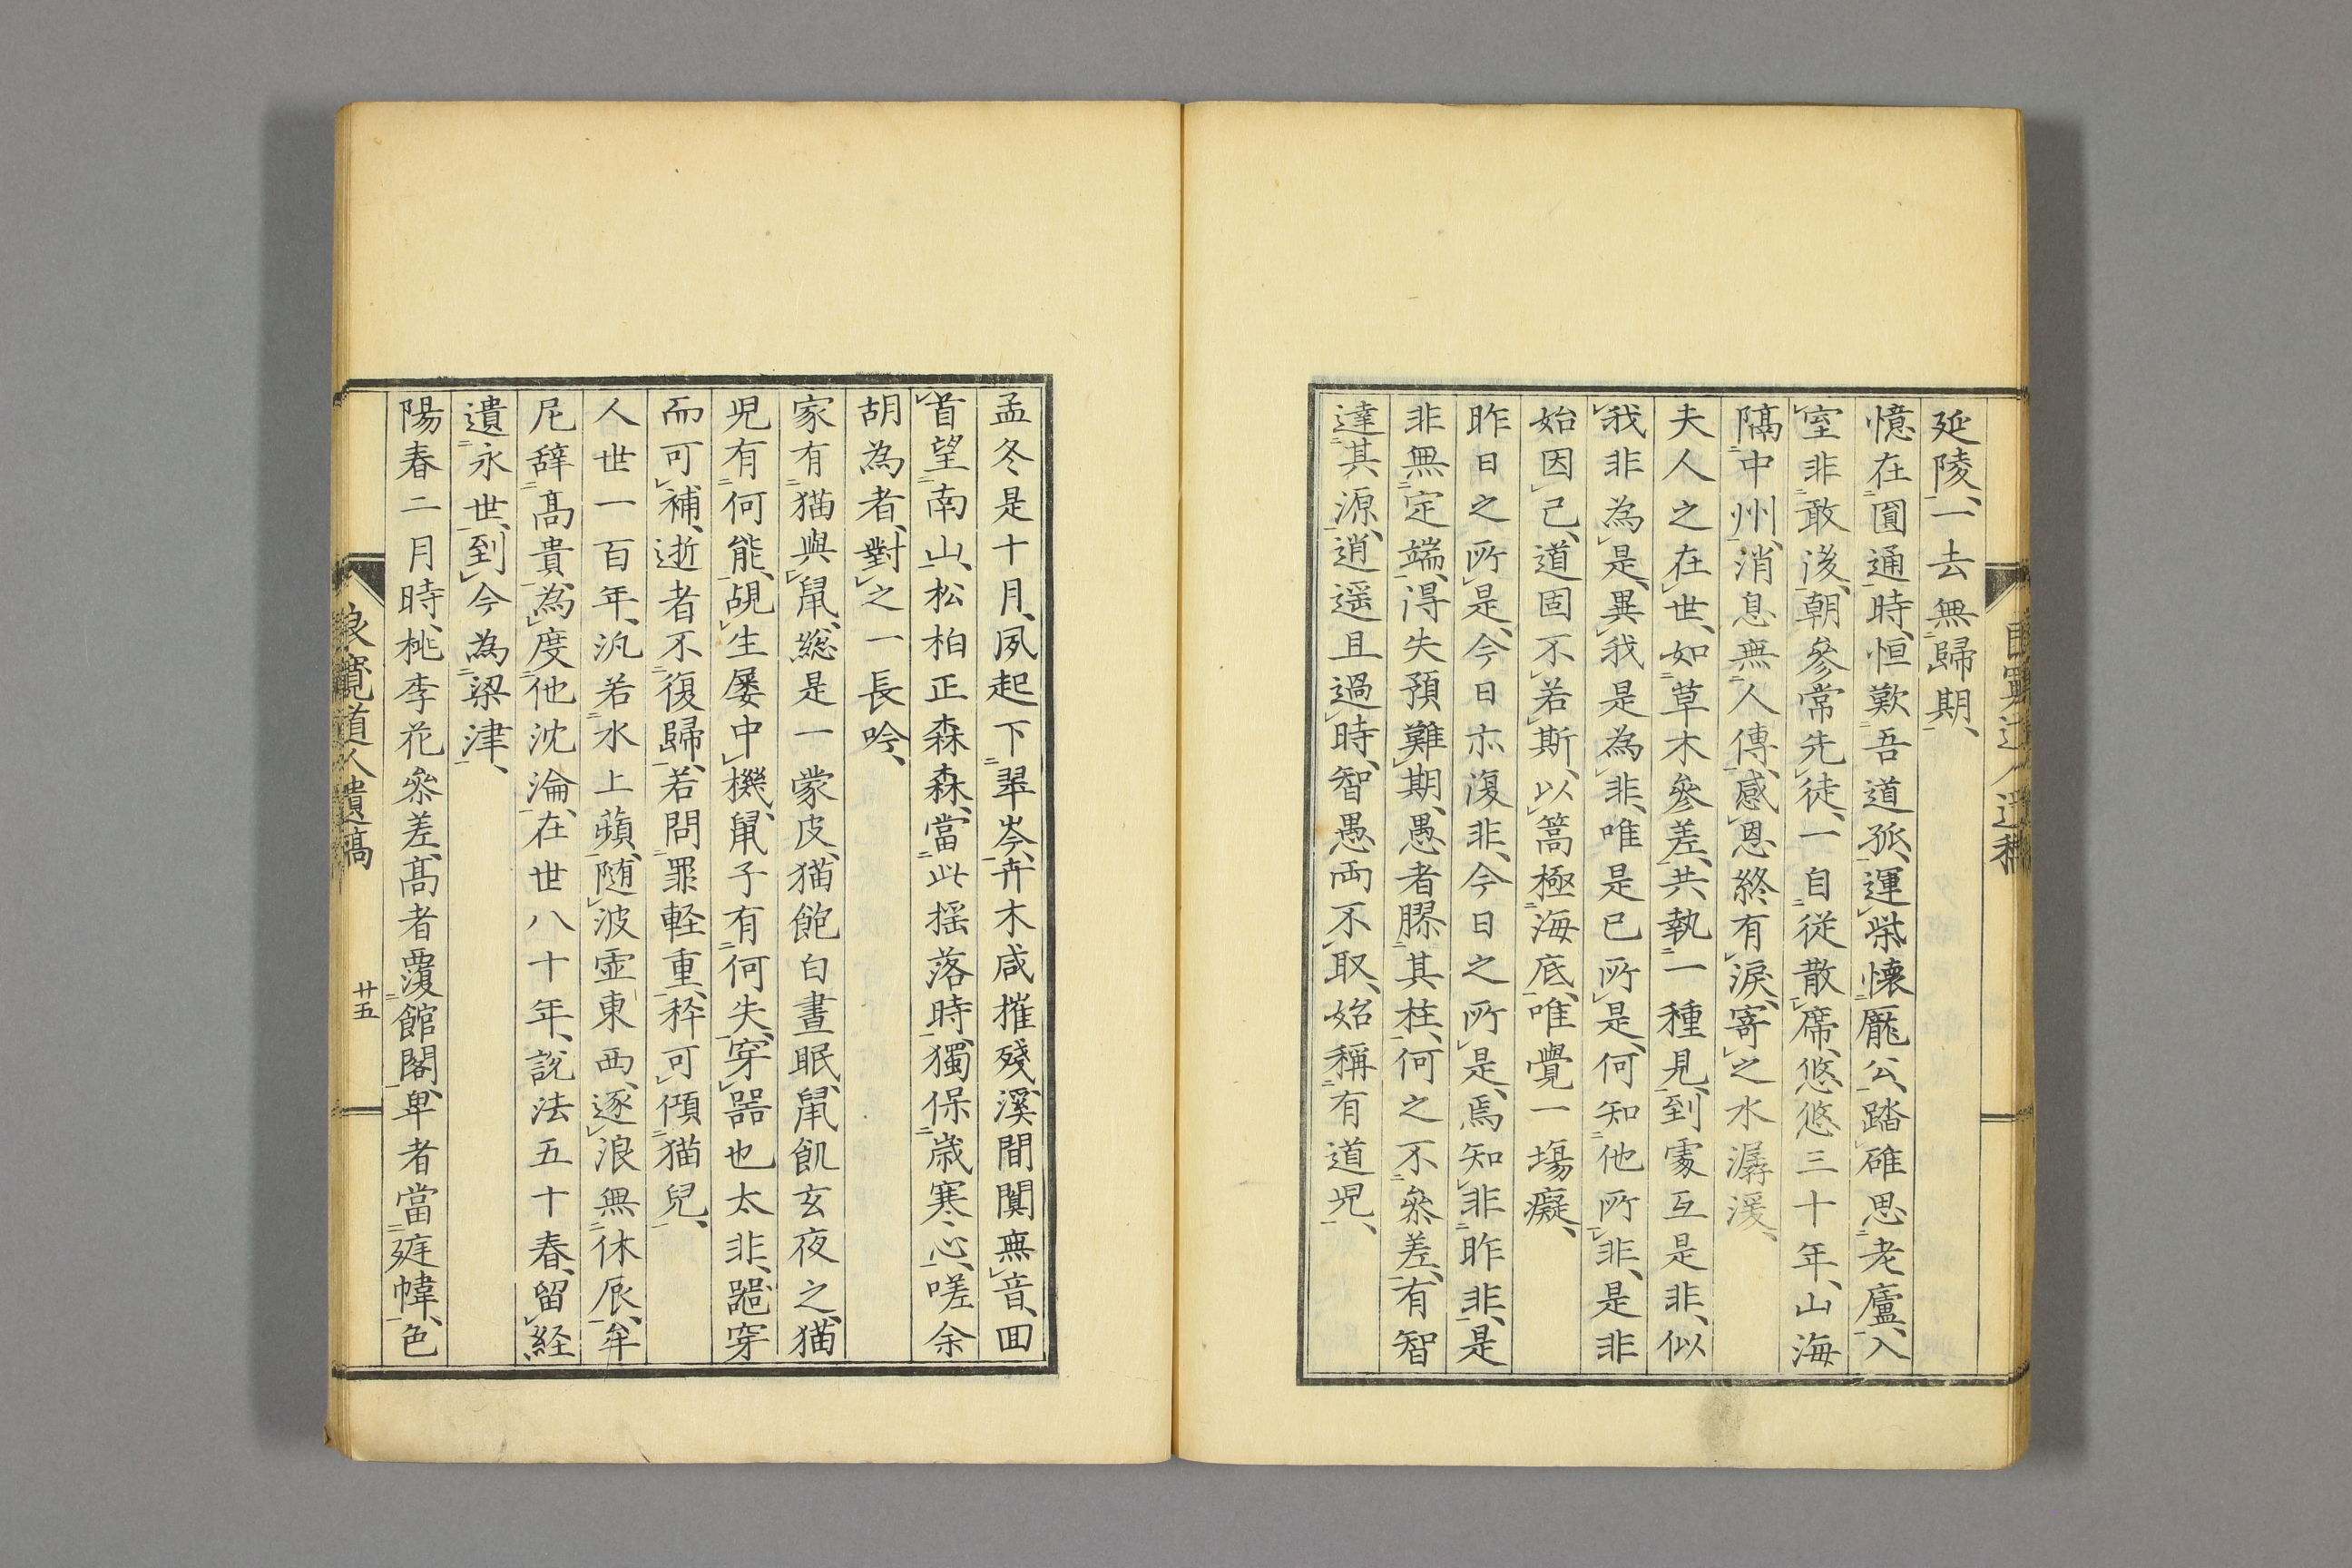 延陵、一去無歸期、
憶在圓通時、恒歎吾道孤、運柴懷龐公、踏碓思老廬、入
室非敢後、朝參常先徒、一自従散席、悠悠三十年、山海
隔中州、消息無人傳、感恩終有淚、寄之水潺湲、
夫人之在世、如草木參差、共執一種見、到處互是非、似
我非為是、異我是為非、唯是已所是、何知他所非、是非
始因己、道固不若斯、以篙極海底、唯覺一場癡、
昨日之所是、今日亦復非、今日之所是、焉知非昨非、是
非無定端、得失預難期、愚者膠其柱、何之不參差、有智
達其源、逍遥且過時、智愚両不取、始稱有道児、
孟冬是十月、夙起下翠岑、卉木咸摧殘、溪間闃無音、回
首望南山、松柏正森森、當此揺落時、獨保歳寒心、嗟余
胡為者、對之一長吟、
家有猫與鼠、緫是一蒙皮、猫飽白晝眠、鼠飢玄夜之、猫
児有何能、覘生屡中機、鼠子有何失、穿器也太非、器穿
而可補、逝者不復歸、若問罪軽重、秤可傾猫兒、
人世一百年、汎若水上蘋、随波虚東西、逐浪無休辰、牟
尼辞高貴、為度他沈淪、在世八十年、説法五十春、留経
遺永世、到今為梁津、
陽春二月時、桃李花參差、髙者覆館閣、卑者當庭幃、色
良寛道人遺稿
廿五